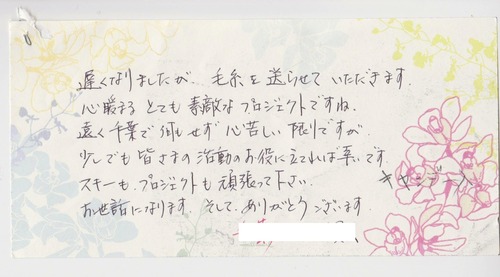 遅くなりましたが 毛糸を送らせていただきます.
心暖まる とても 素敵な プロジェクトですね.
遠く千葉で何もせず 心苦しい 限りですが
少しでも 皆さまの 活動のお役に 立てれば幸いです.
スキーも.プロジェクトも 頑張って下さい.
キャンディー
お世話になります. そして. ありがとうございます.